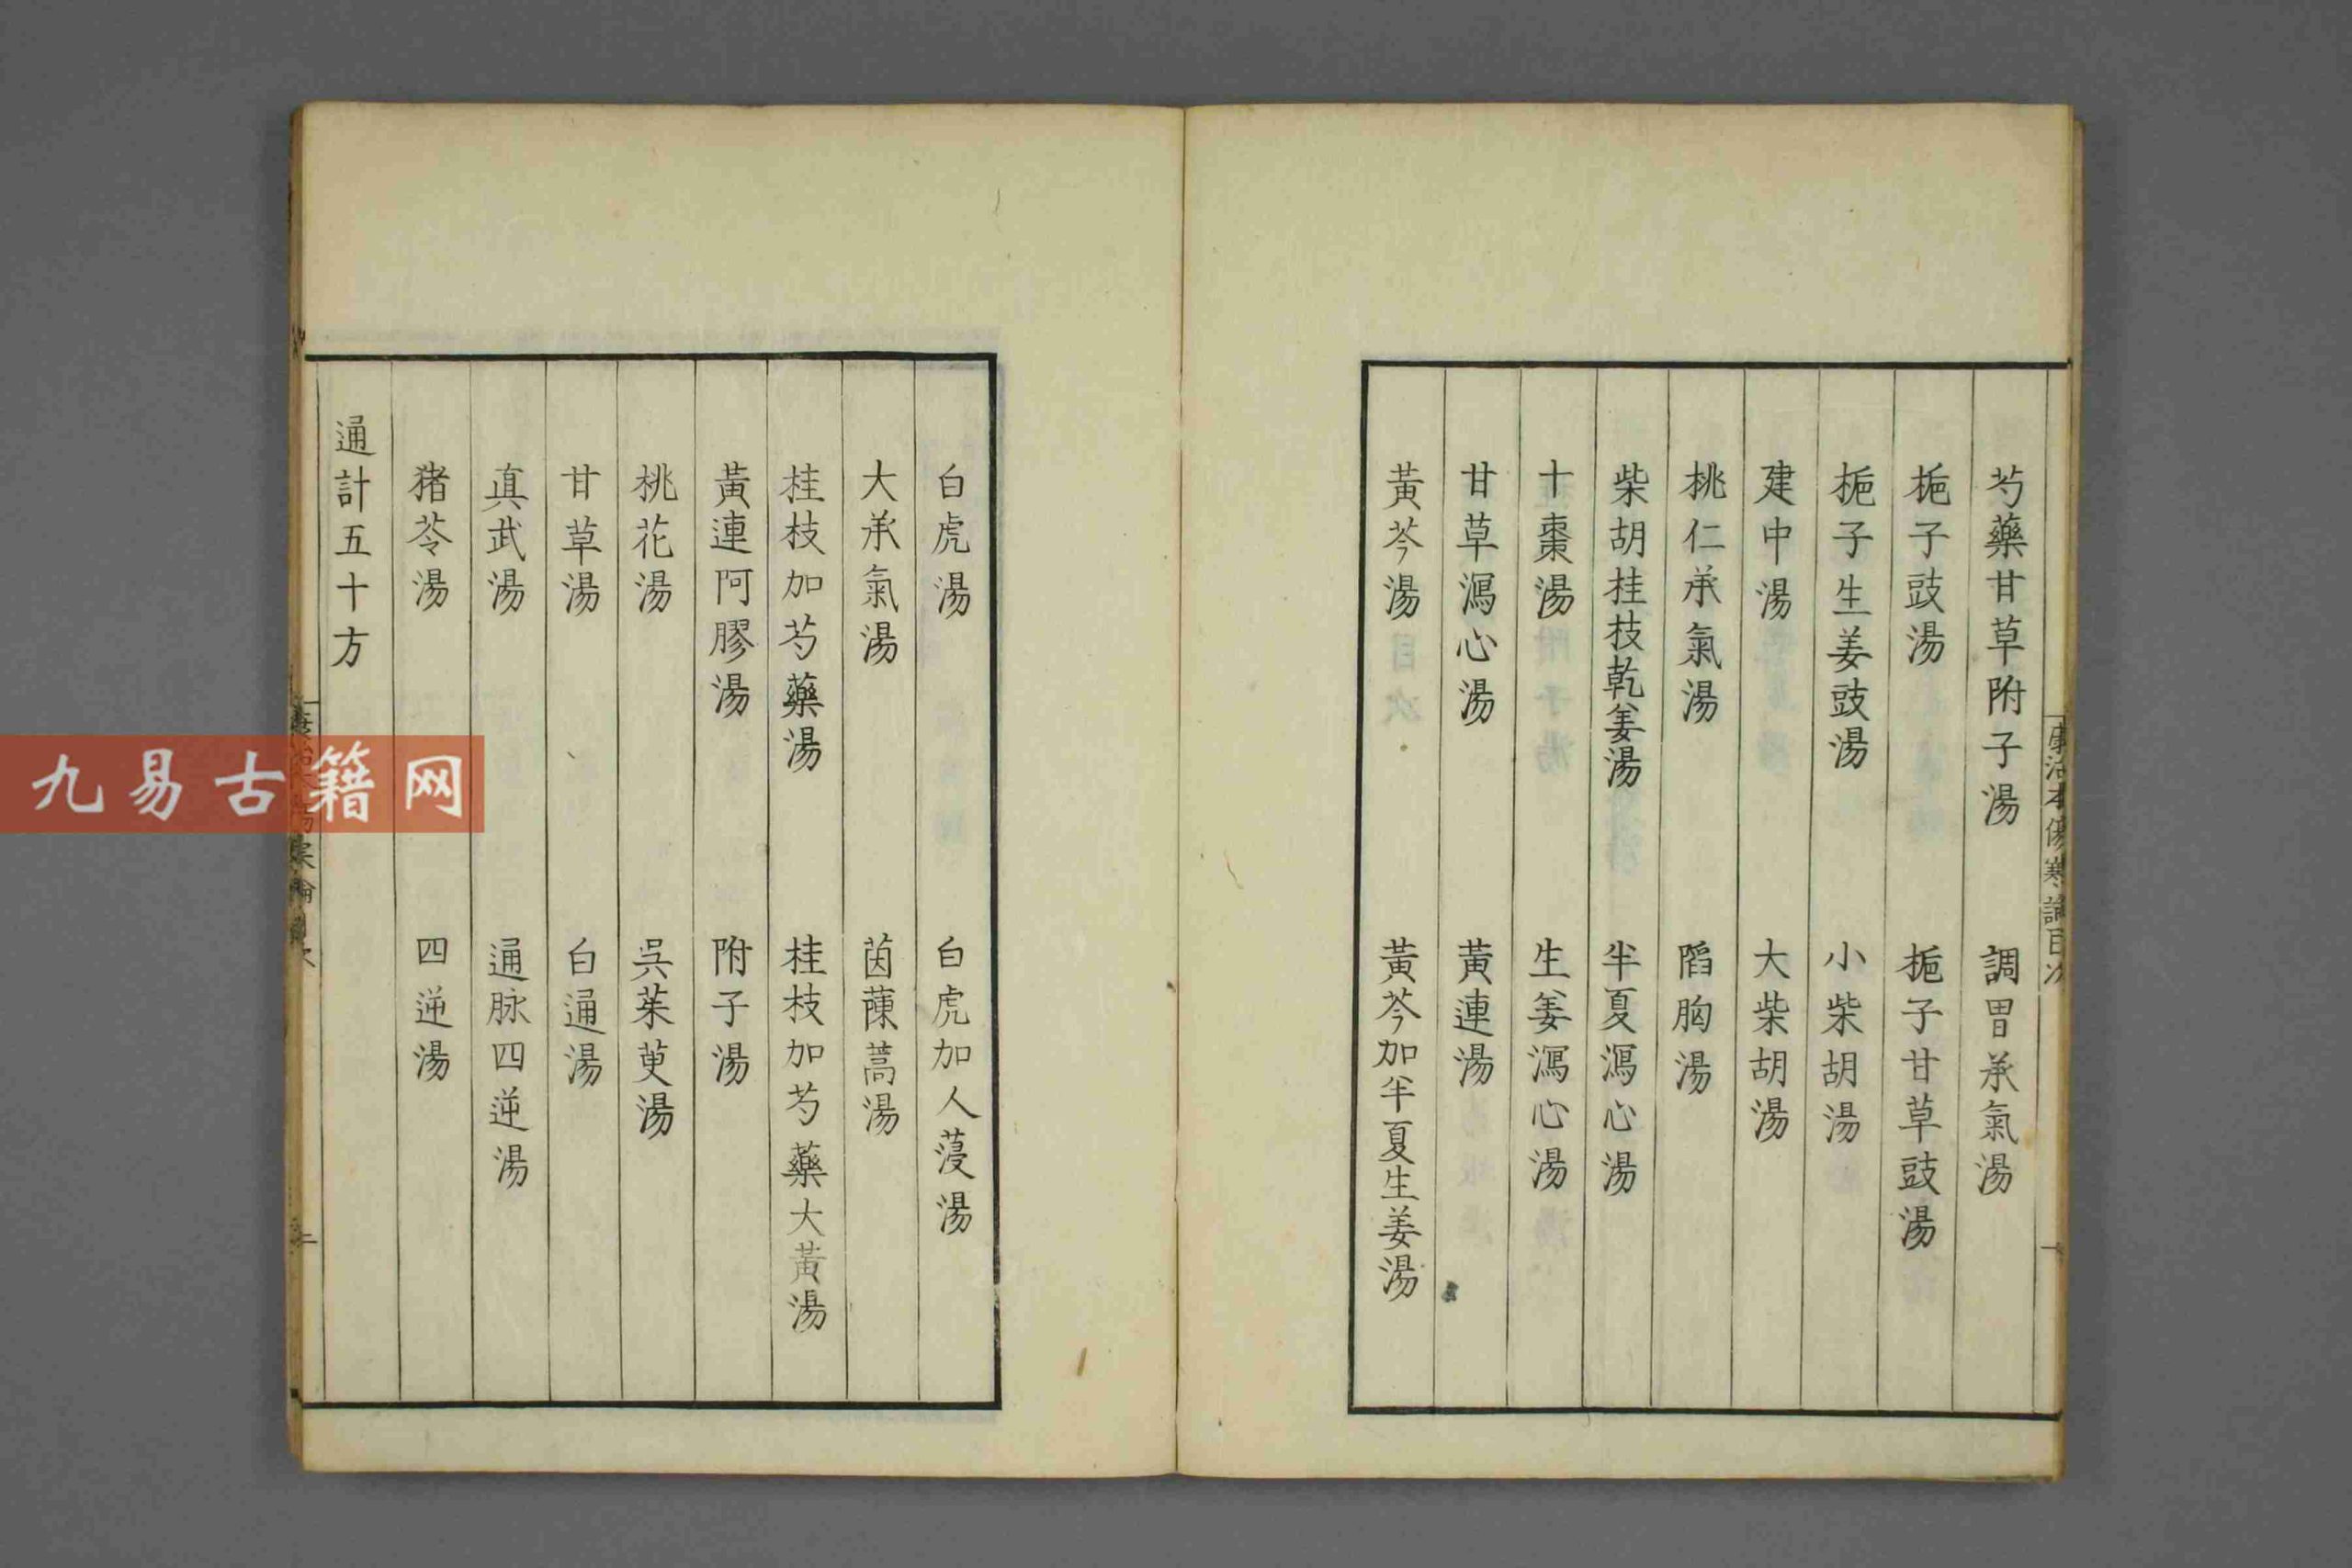 康治本傷寒論目次
一
芍藥甘草附子湯　調胃承氣湯
梔子豉湯　梔子甘草豉湯
梔子生姜豉湯　小柴胡湯
建中湯　大柴胡湯
桃仁承氣湯　陷胸湯
柴胡桂枝乾姜湯　半夏瀉心湯
十棗湯　生姜瀉心湯
甘草瀉心湯　黃連湯
黃芩湯　黃芩加半夏生姜湯
白虎湯　白虎加人蓡湯
大承氣湯　茵蔯蒿湯
桂枝加芍藥湯　桂枝加芍藥大黃湯
黃連阿膠湯　附子湯
桃花湯　吳茱萸湯
甘草湯　白通湯
真武湯　通脉四逆湯
猪苓湯　四逆湯
通計五十方
二
九易古籍网